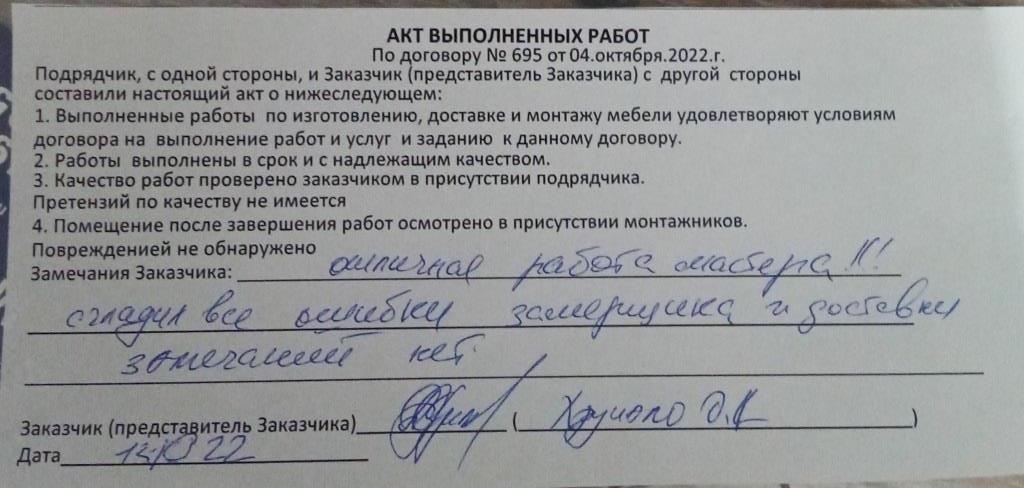 АКТ ВЫПОЛНЕННЫХ РАБОТ
По договору № 695 от 04.октября.2022.г.
Подрядчик, с одной стороны, и Заказчик (представитель Заказчика) с другой стороны
составили настоящий акт о нижеследующем:
1. Выполненные работы по изготовлению, доставке и монтажу мебели удовлетворяют условиям
договора на выполнение работ и услуг и заданию к данному договору.
2. Работы выполнены в срок и с надлежащим качеством.
3. Качество работ проверено заказчиком в присутствии подрядчика.
Претензий по качеству не имеется
4. Помещение после завершения работ осмотрено в присутствии монтажников.
Поврежденией не обнаружено
Замечания Заказчика: отличная работа мастера!!!
сгладил все ошибки замерщика и доставки
замечаний нет.
Заказчик (представитель Заказчика) ( )
Дата